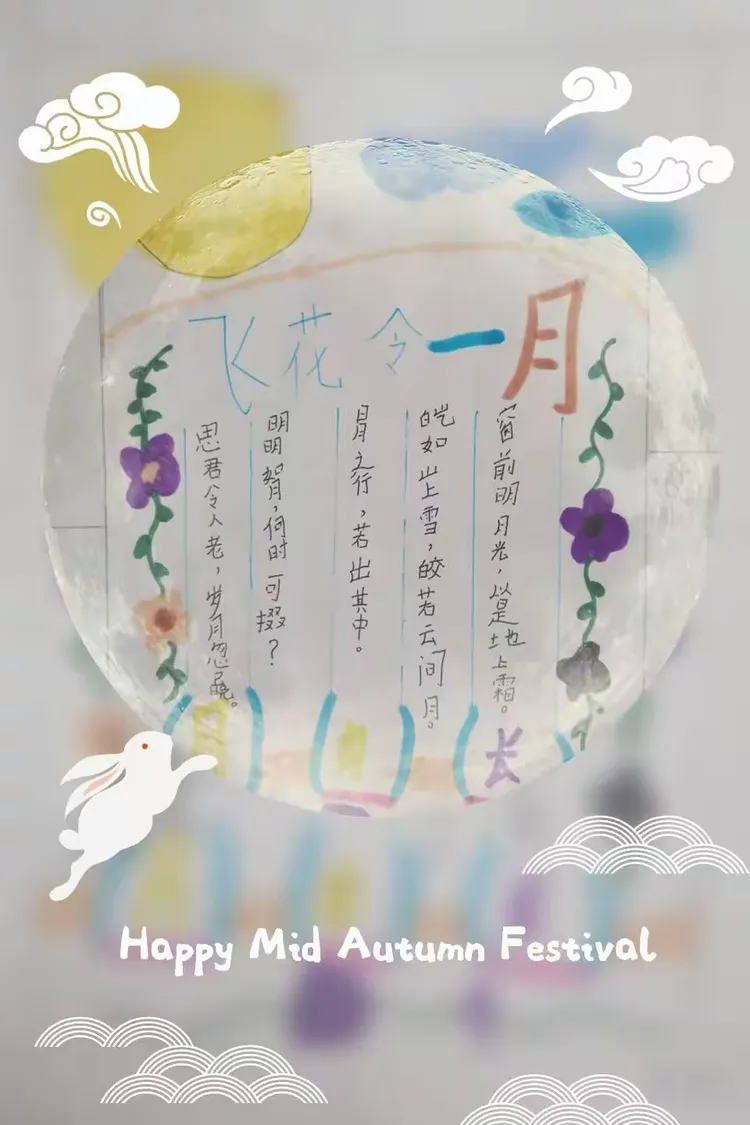 飞花令一月
窗前明月光，以是地上霜。
皑如山上雪，皎若云间月。
日月之行，若出其中。
明明如月，何时可掇？
思君令人老，岁月忽已晚。
长
Happy Mid Autumn Festival